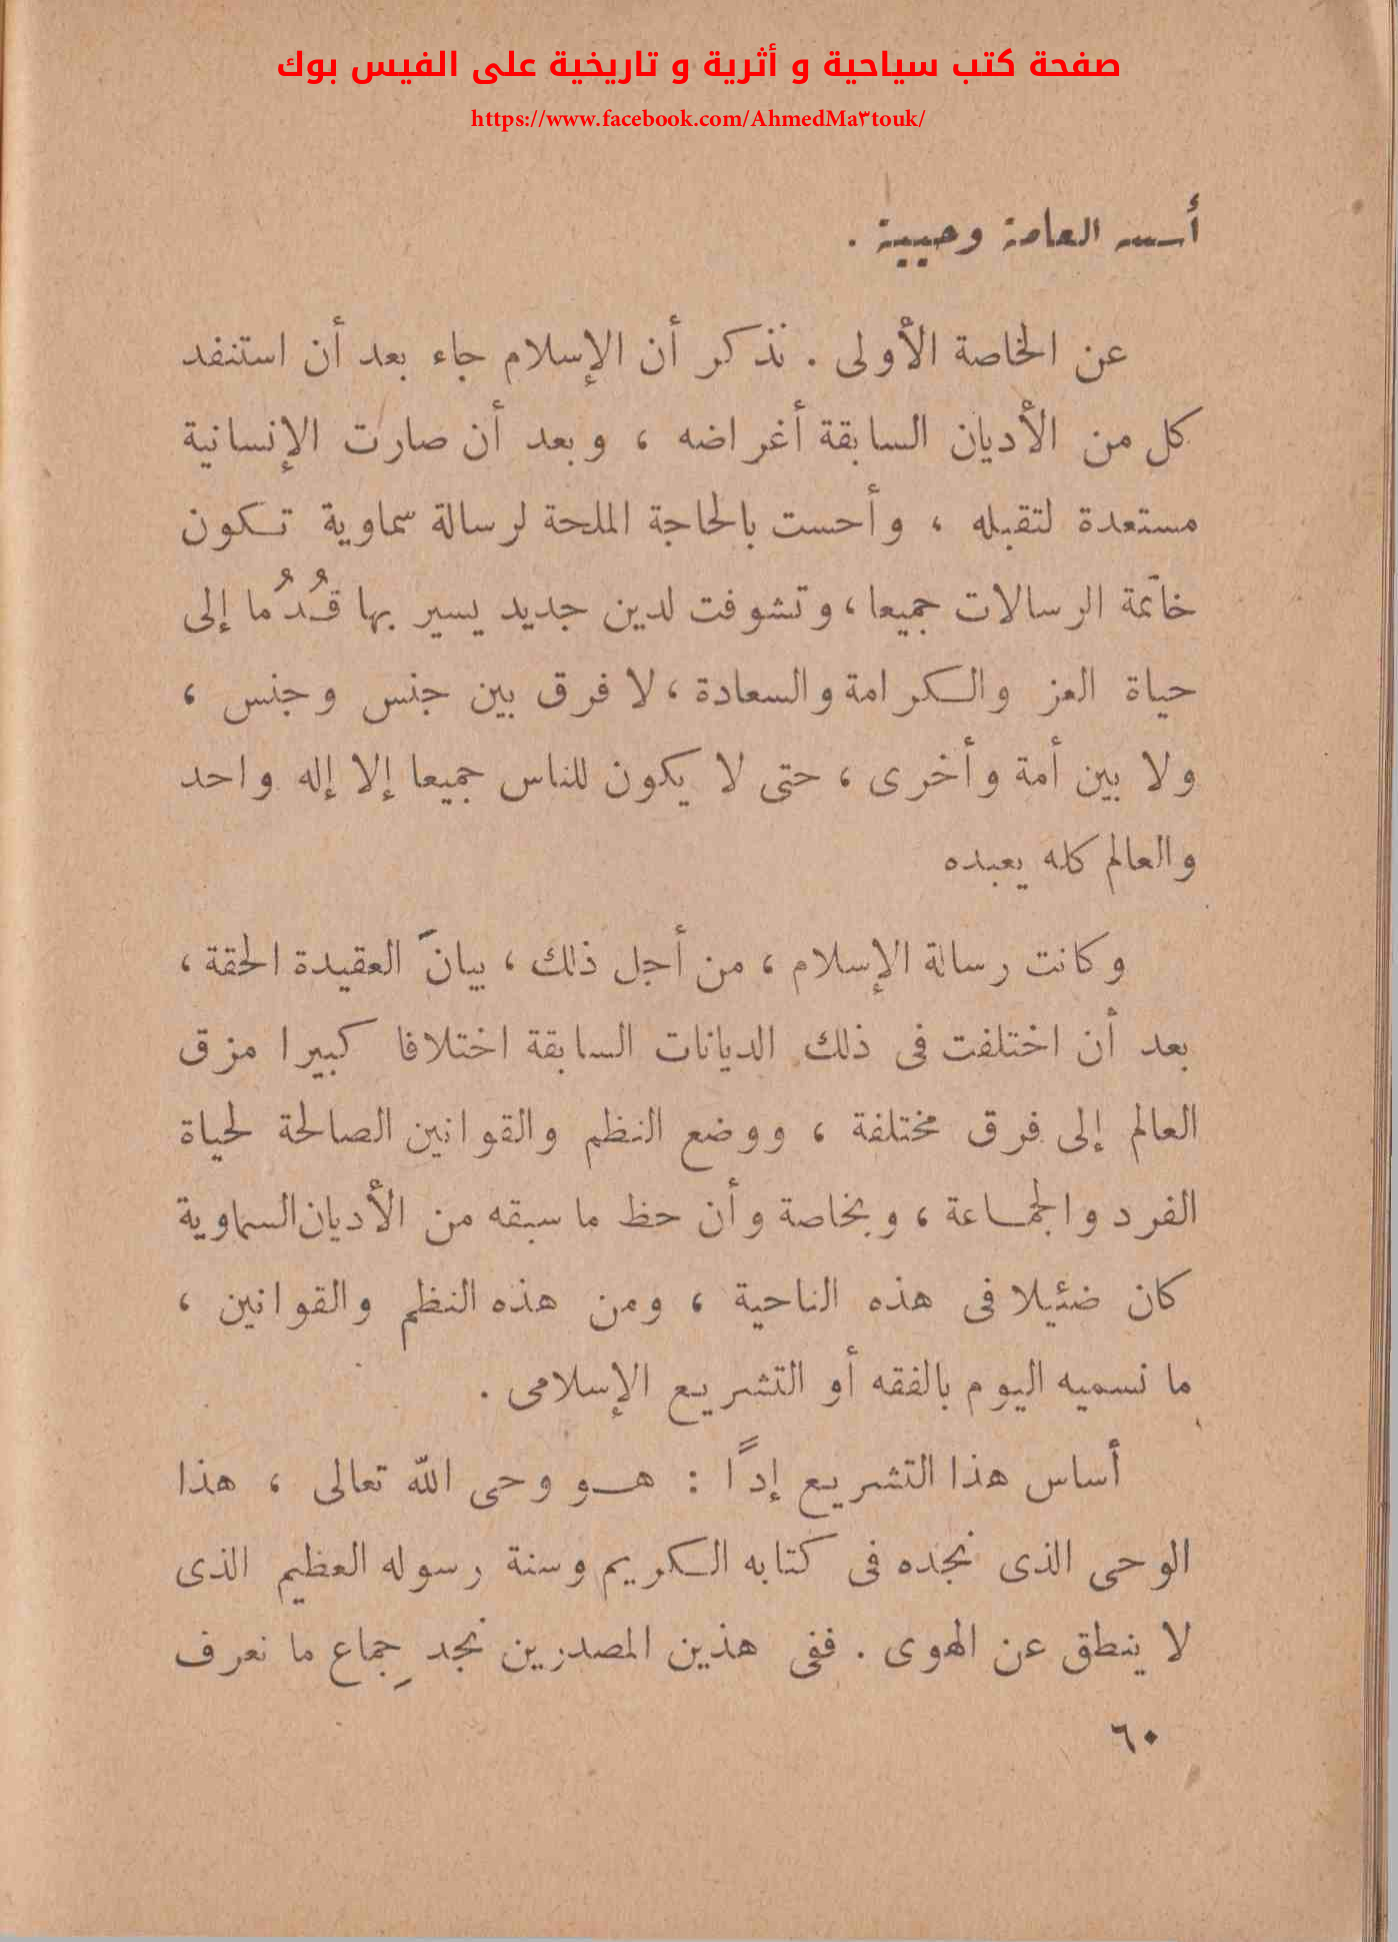 صفحة كتب سياحية و أثرية و تاريخية على الفيس بوك
https://www.facebook.com/AhmedMa٣touk/
أسسه العامة وحيية .
عن الخاصة الأولى . نذكر أن الإسلام جاء بعد أن استنفد
كل من الأديان السابقة أغراضه ، وبعد أن صارت الإنسانية
مستعدة لتقبله ، وأحست بالحاجة الملحة لرسالة سماوية تكون
خاتمة الرسالات جميعا ، وتشوفت لدين جديد يسير بها قُدُما إلى
حياة العز والكرامة والسعادة ، لا فرق بين جنس وجنس ،
ولا بين أمة وأخرى ، حتى لا يكون للناس جميعا إلا إله واحد
والعالم كله يعبده
وكانت رسالة الإسلام ، من أجل ذلك ، بيانَ العقيدة الحقة ،
بعد أن اختلفت فى ذلك الديانات السابقة اختلافا كبيرا مزق
العالم إلى فرق مختلفة ، ووضع النظم والقوانين الصالحة لحياة
الفرد والجماعة ، وبخاصة وأن حظ ما سبقه من الأديان السماوية
كان ضئيلا فى هذه الناحية ، ومن هذه النظم والقوانين ،
ما نسميه اليوم بالفقه أو التشريع الإسلامى .
أساس هذا التشريع إدًا : هو وحى الله تعالى ، هذا
الوحى الذى نجده فى كتابه الكريم وسنة رسوله العظيم الذى
لا ينطق عن الهوى . ففى هذين المصدرين نجد جِماع ما نعرف
٦٠